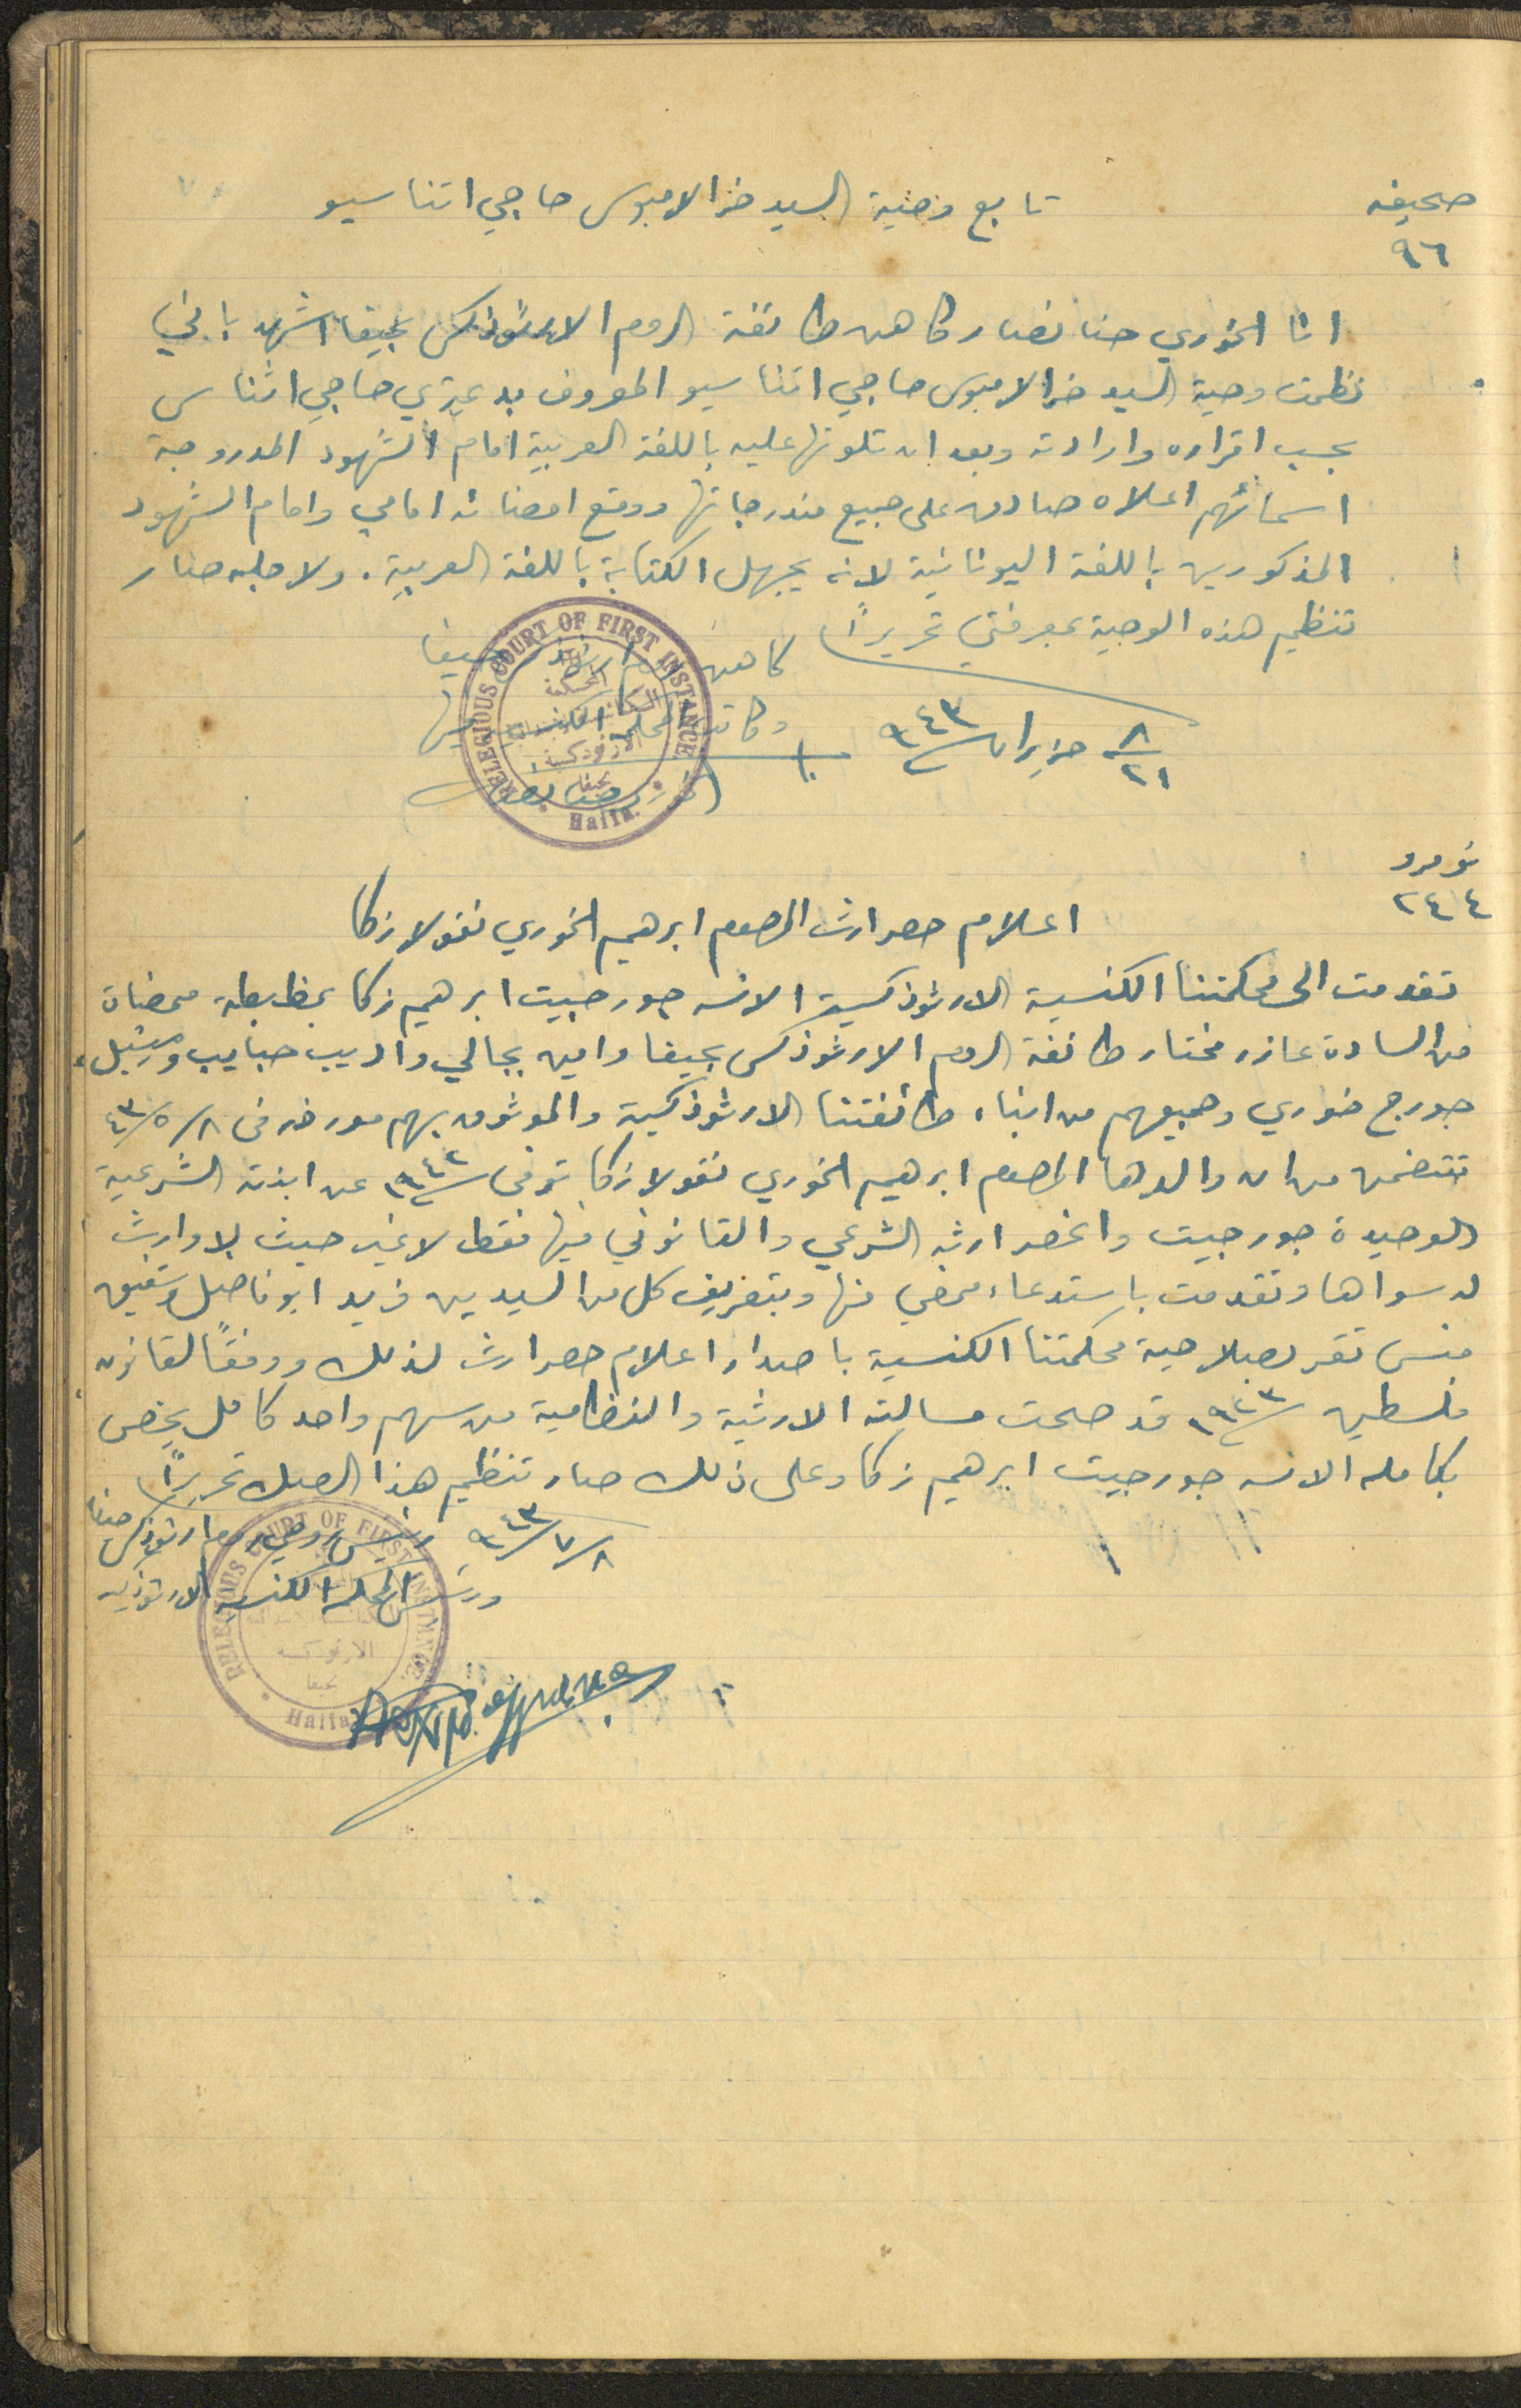 صحيفه
٩٦
تابع وصية السيد خرالامبوس حاجي اتناسيو
انا الخوري حنا نصار كاهن طائفة الروم الارثوذكس بحيفا اشهد بانني
نظمت وصية السيد خرالامبوس حاجي اتناسيو المعروف حاجي اثناس
بحسب اقراره وارادته وبعد ان تلوتها عليه باللغة العربية امام الشهود المدروجة
اسمائهم اعلاه صادق على جميع مندرجاتها ووقع امضائه امامي وامام الشهود
المذكورين باللغة اليونانية لانه يجهل الكتابة باللغة العربية. ولاجله صار
تنظيم هذه الوصية بمعرفتي تحريراً
٨/٢١ حزيران ٩٤٣
كاهن حيفا
وكاتب
الخوري حنا نصار
RELEGIOUS COURT OF FIRST INSTANCE
المحكمة
الكنائسية الابتدائية
الارثوذكسية
بحيفا
Haifa.
نومرو
٢٤٤
اعلام حصر ارث المرحوم ابرهيم الخوري نقولا زكا
تقدمت الى محكمتنا الكنسية الارثوذكسية الانسه جورجيت ابرهيم زكا بمظبطة ممضاة
من السادة عازر مختار طائفة الروم الارثوذكس بحيفا وامين بجالي واديب حبايب وميشيل
جورج خوري وجميعهم من ابناء طائفتنا الارثوذكسية والموثوق بهم مورخه في ٨/٥/٤٣
تتضمن من ان والدها المرحوم ابرهيم الخوري نقولا زكا توفى ١٩٤٢ عن ابنته الشرعية
الوحيدة جورجيت وانحصر ارثه الشرعي والقانوني فيها فقط لا غير حيث لا وارث
له سواها وتقدمت باستدعاء ممضي منها وبتعريف كل من السيدين فريد ابو فاضل وشفيق
منسى تقر بصلاحية محكمتنا الكنسية باصدار اعلام حصر ارث لذلك ووفقاً لقانون
فلسطين ١٩٢٣ قد صحت مسالته الارثية والنظامية من سهم واحد كامل يخص
بكامله الانسه جورجيت ابرهيم زكا وعلى ذلك صار تنظيم هذا الصك تحريراً
٨/٧/٩٤٣
رئيس روحي روم ارثوذكس حيفا
ورئيس المحكمة الكنسية الارثوذكسية
RELEGIOUS COURT OF FIRST INSTANCE
الارثوذكسية
بحيفا
Haifa.